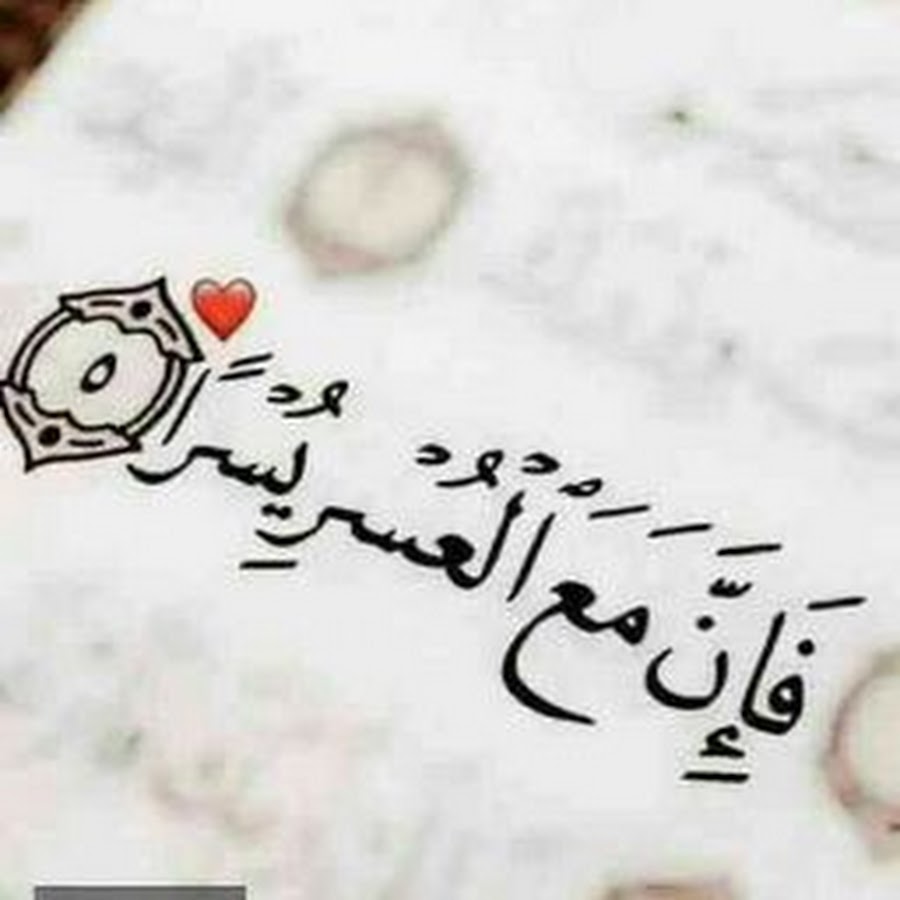 فَإِنَّ مَعَ ٱلْعُسْرِ يُسْرًا ٥ ❤️